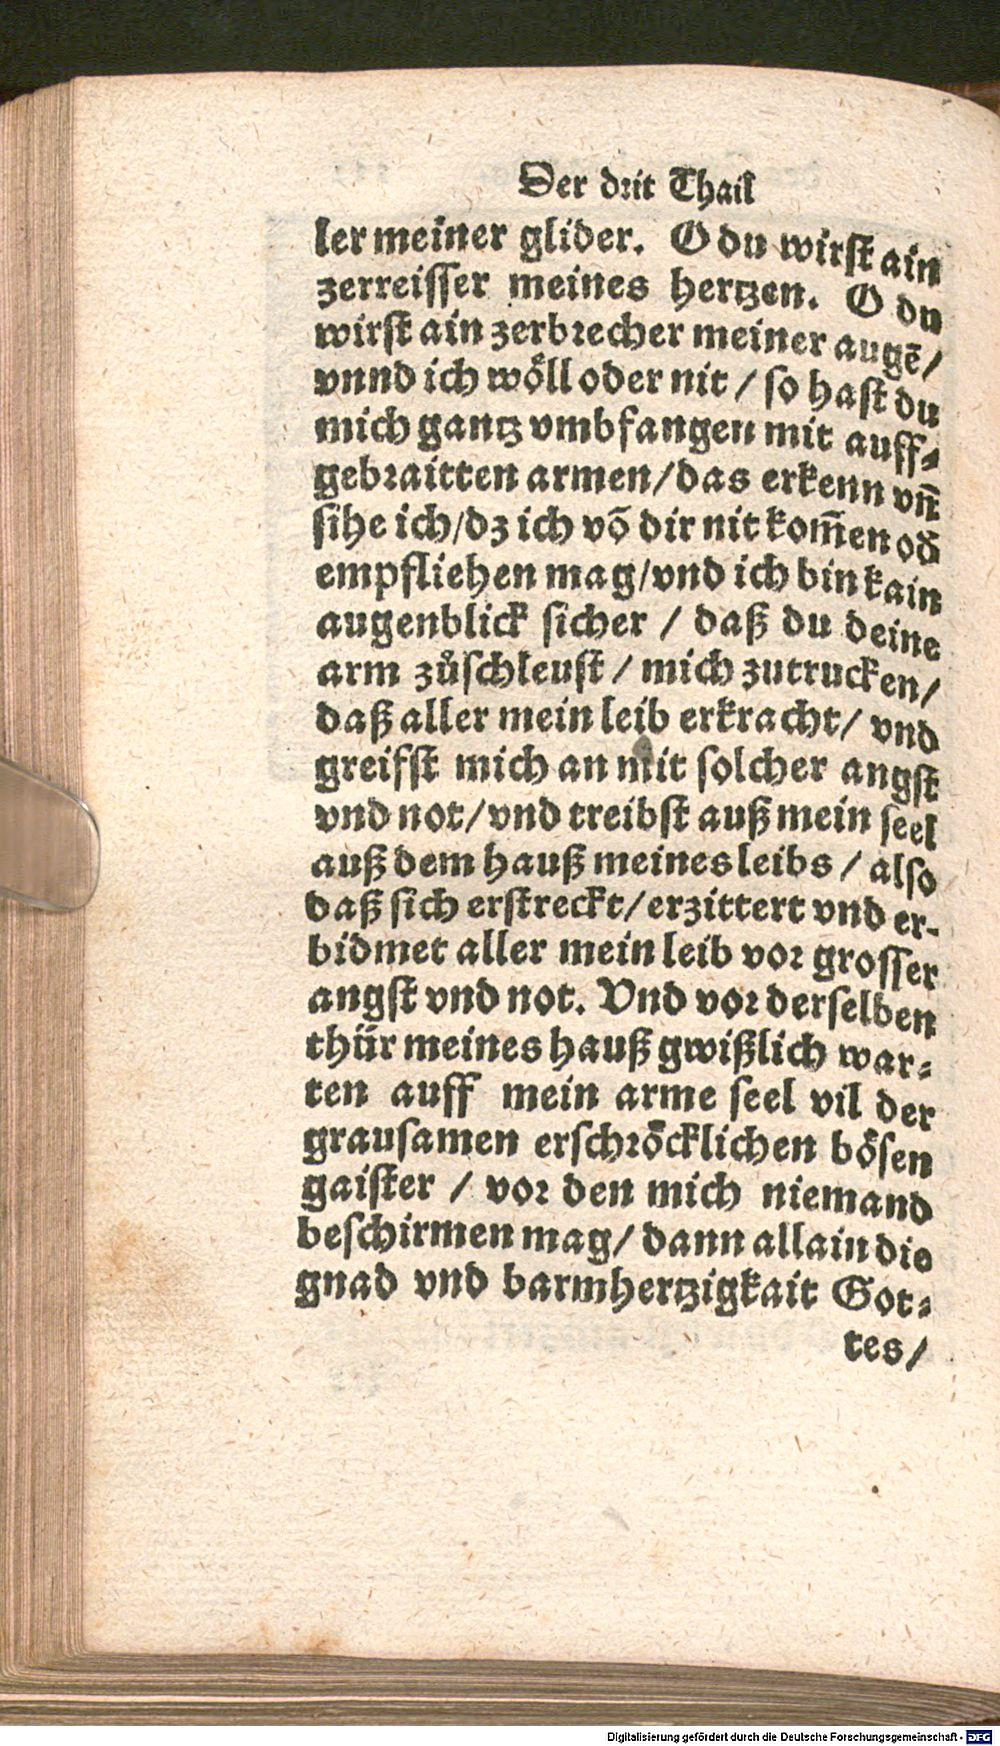 Der drit Thail
ler meiner glider. O du wirst ain
zerreisser meines hertzen. O du
wirst ain zerbrecher meiner augē/
vnnd ich wöll oder nit / so hast du
mich gantz vmbfangen mit auff⸗
gebraitten armen/das erkenn vn̄
sihe ich/dz ich vō dir nit kom̄en od̄
empfliehen mag/vnd ich bin kain
augenblick sicher / daß du deine
arm zůschleust / mich zutrucken/
daß aller mein leib erkracht/ vnd
greifst mich an mit solcher angst
vnd not/vnd treibst auß mein seel
auß dem hauß meines leibs / also
daß sich erstreckt/erzittert vnd er-
bidmet aller mein leib vor grosser
angst vnd not. Vnd vor derselben
thür meines hauß gwißlich war⸗
ten auff mein arme seel vil der
grausamen erschröcklichen bösen
gaister / vor den mich niemand
beschirmen mag/ dann allain die
gnad vnd barmhertzigkait Got⸗
tes/
Digitalisierung gefördert durch die Deutsche Forschungsgemeinschaft - DFG